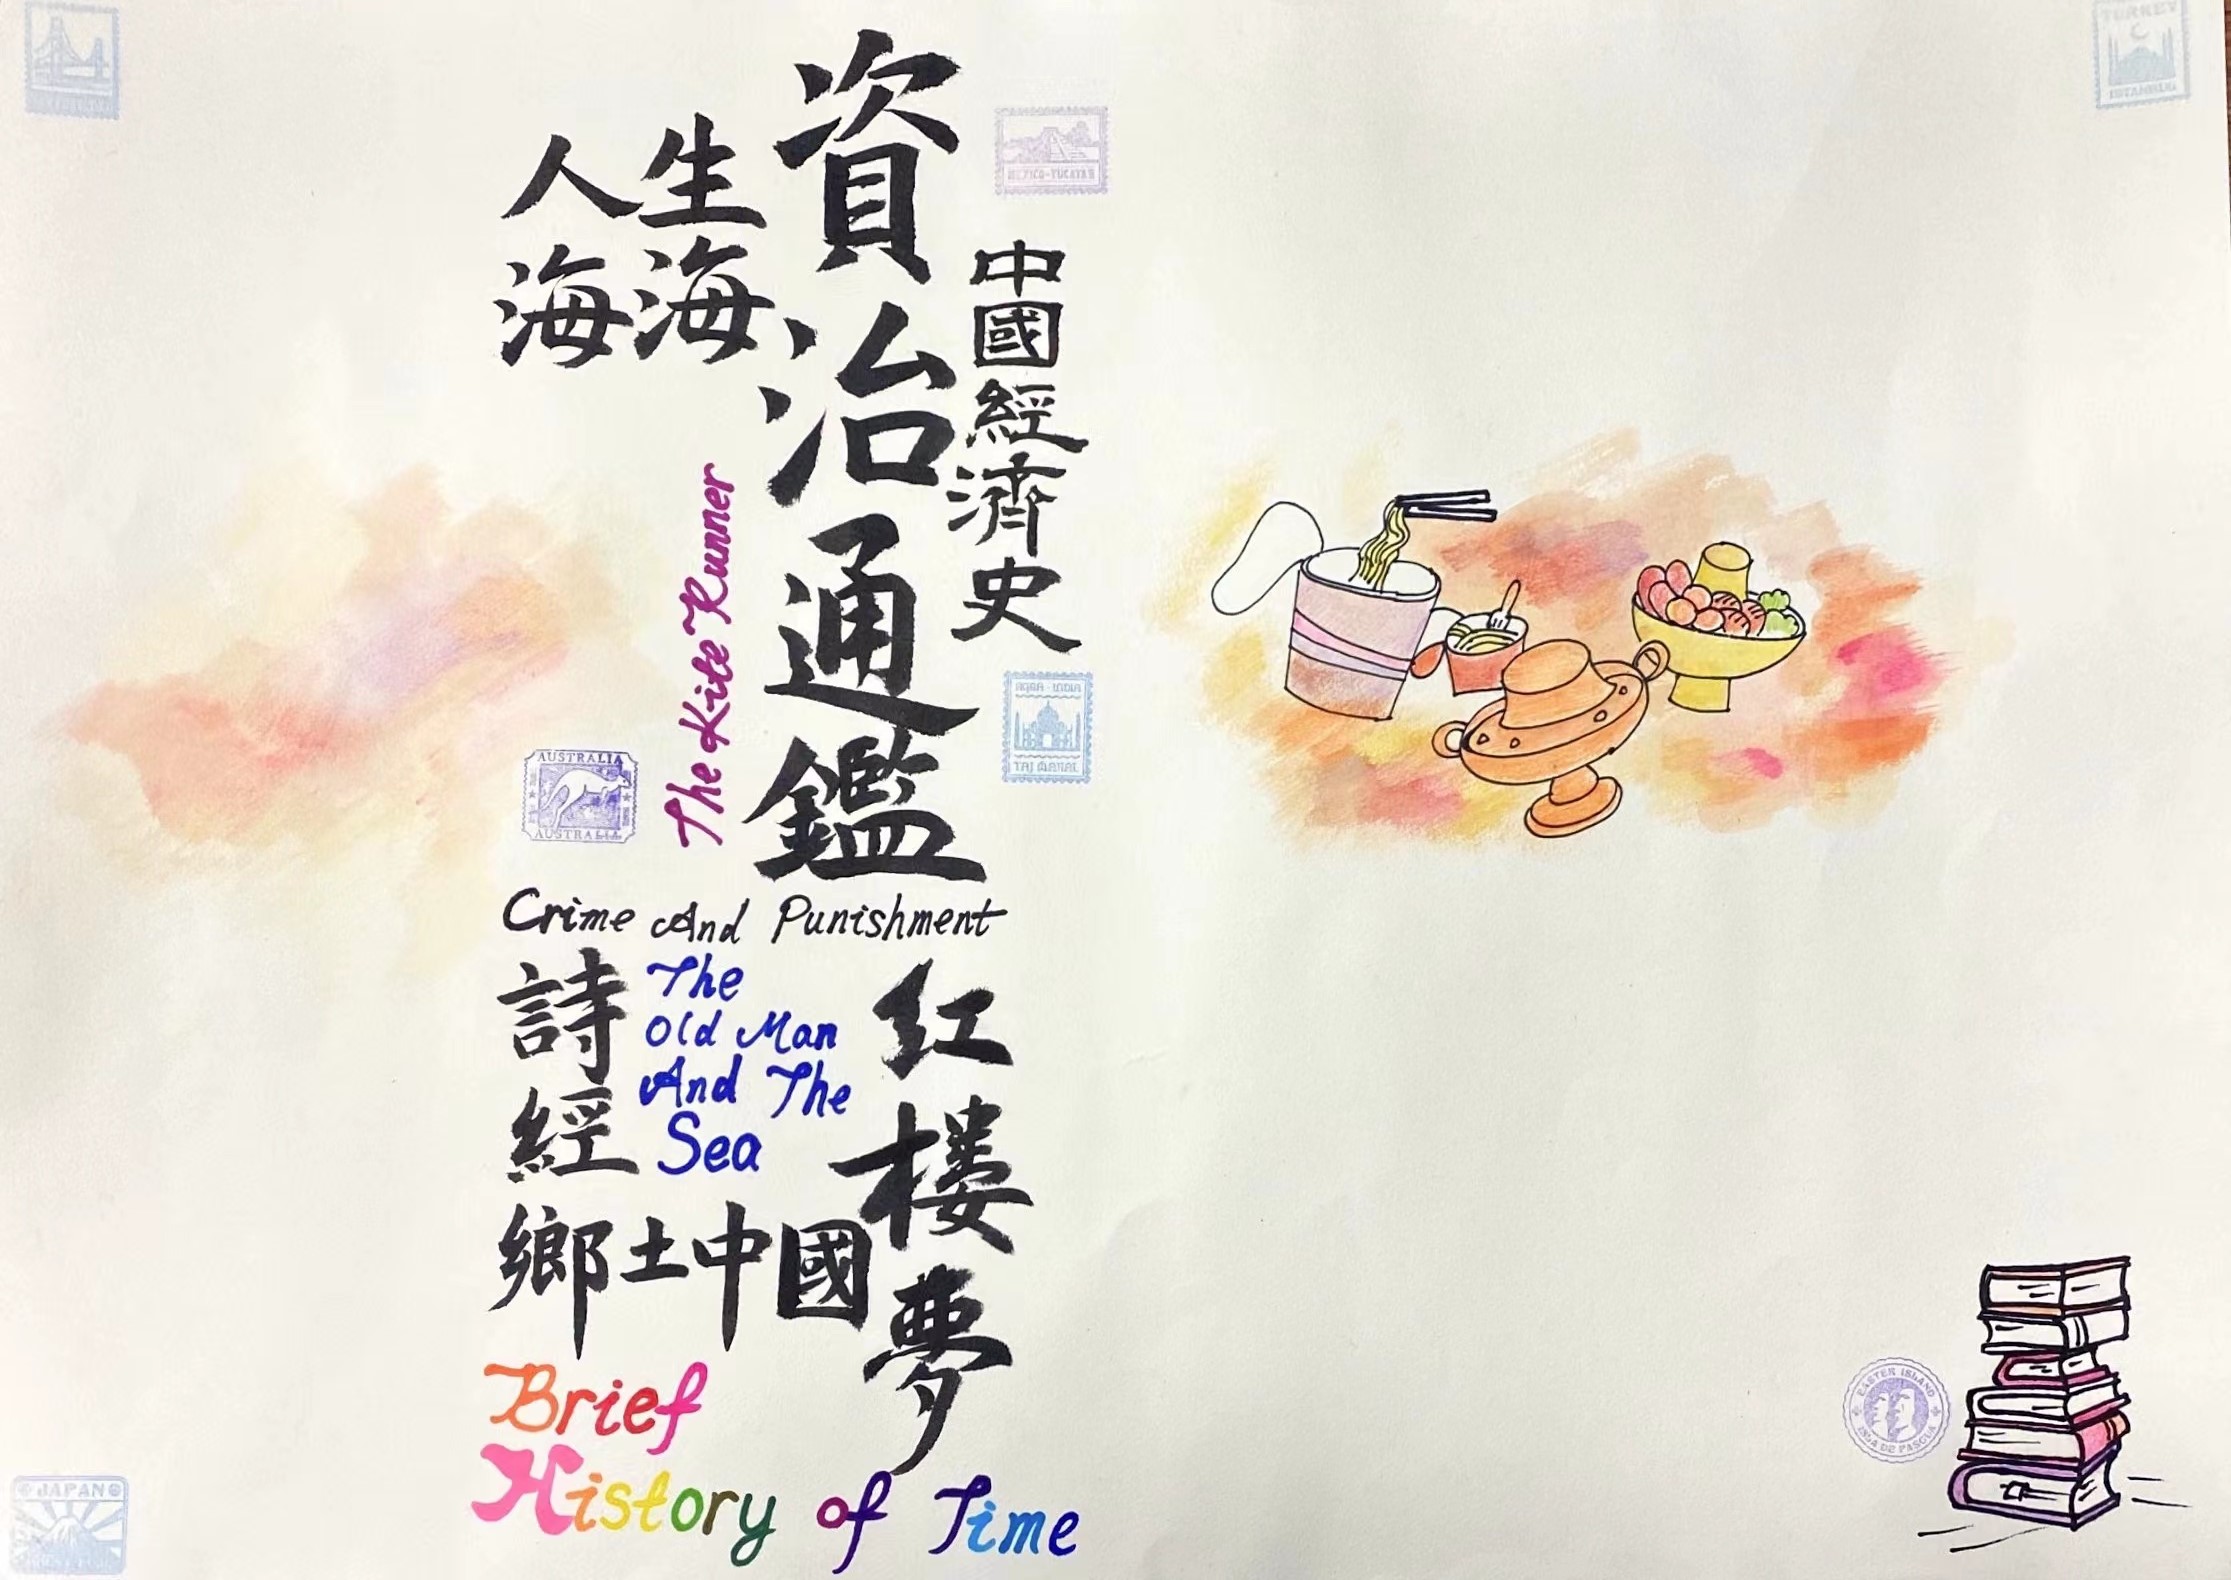 人生
海海
資治通鑑
中國經濟史
The Kite Runner
Crime And Punishment
詩經
The
Old Man
And The
Sea
红楼夢
鄉土中國
Brief
History of Time
MEXICO-YUCATAN
TURKEY
ISTANBUL
AGRA-INDIA
TAJ MAHAL
AUSTRALIA
AUSTRALIA
JAPAN
EASTER ISLAND
ISLA DE PASCUA